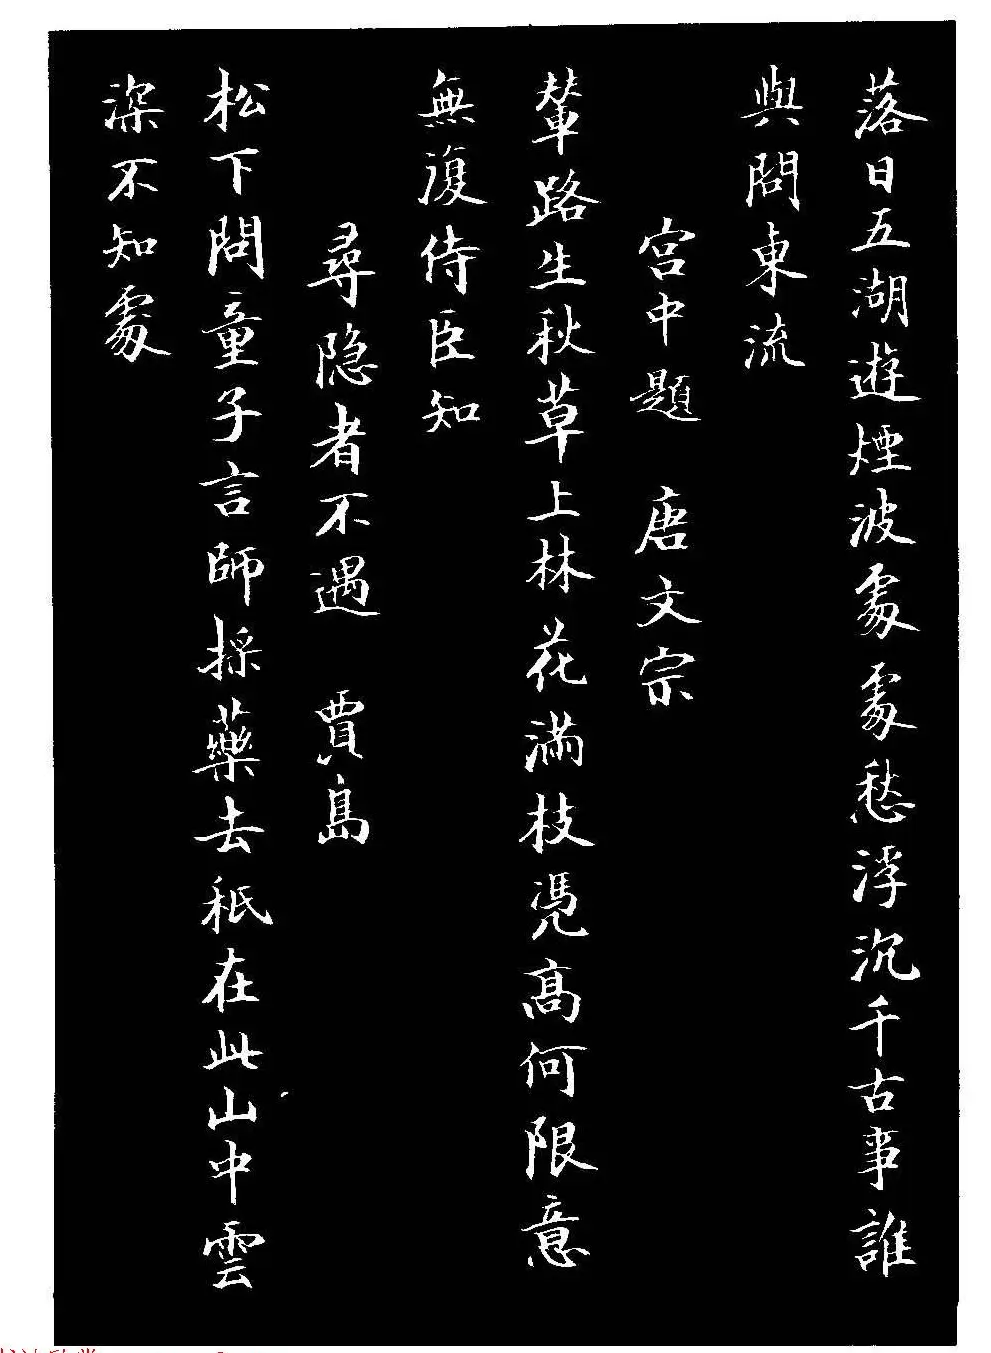 落日五湖遊煙波處處愁浮沉千古事誰
與問東流
宮中題 唐文宗
輦路生秋草上林花滿枝憑高何限意
無復侍臣知
尋隐者不遇 賈島
松下問童子言師採藥去秖在此山中雲
深不知處